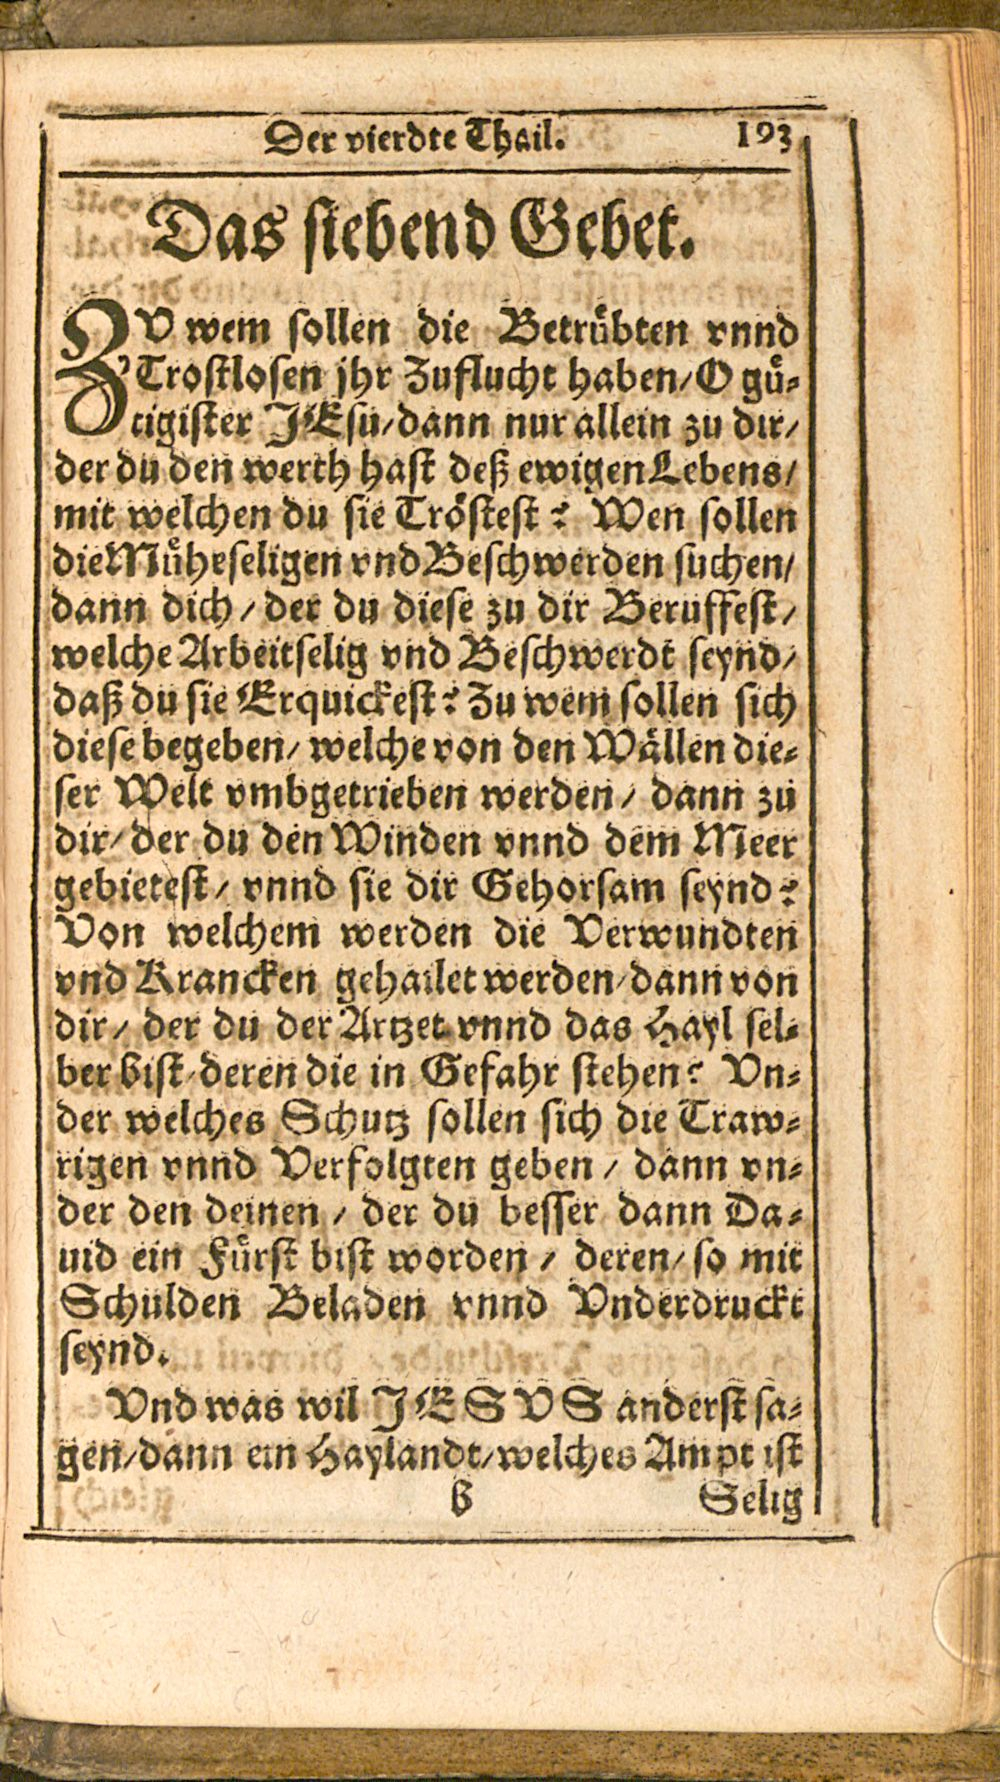 Der vierdte Thail. 193
Das siebend Gebet.
ZV wem sollen die Betrůbten vnnd
Trostlosen jhr Zuflucht haben/ O gů-
tigister JEsu/dann nur allein zu dir/
der du den werth hast deß ewigen Lebens/
mit welchen du sie Tröstest? Wen sollen
die Můheseligen vnd Beschwerden suchen/
dann dich/ der du diese zu dir Beruffest/
welche Arbeitselig vnd Beschwerdt seynd/
daß du sie Erquickest? Zu wem sollen sich
diese begeben/ welche von den Wällen die-
ser Welt vmbgetrieben werden/ dann zu
dir/ der du den Winden vnnd dem Meer
gebietest/ vnnd sie dir Gehorsam seynd?
Von welchem werden die Verwundten
vnd Krancken gehailet werden/dann von
dir/ der du der Artzet vnnd das Hayl sel-
ber bist/deren die in Gefahr stehen? Vn-
der welches Schutz sollen sich die Traw-
rigen vnnd Verfolgten geben/ dann vn-
der den deinen/ der du besser dann Da-
uid ein Fürst bist worden/ deren/ so mit
Schulden Beladen vnnd Vnderdruckt
seynd.
Vnd was wil JESVS anderst sa-
gen/dann ein Haylandt/welches Ampt ist
ß Selig